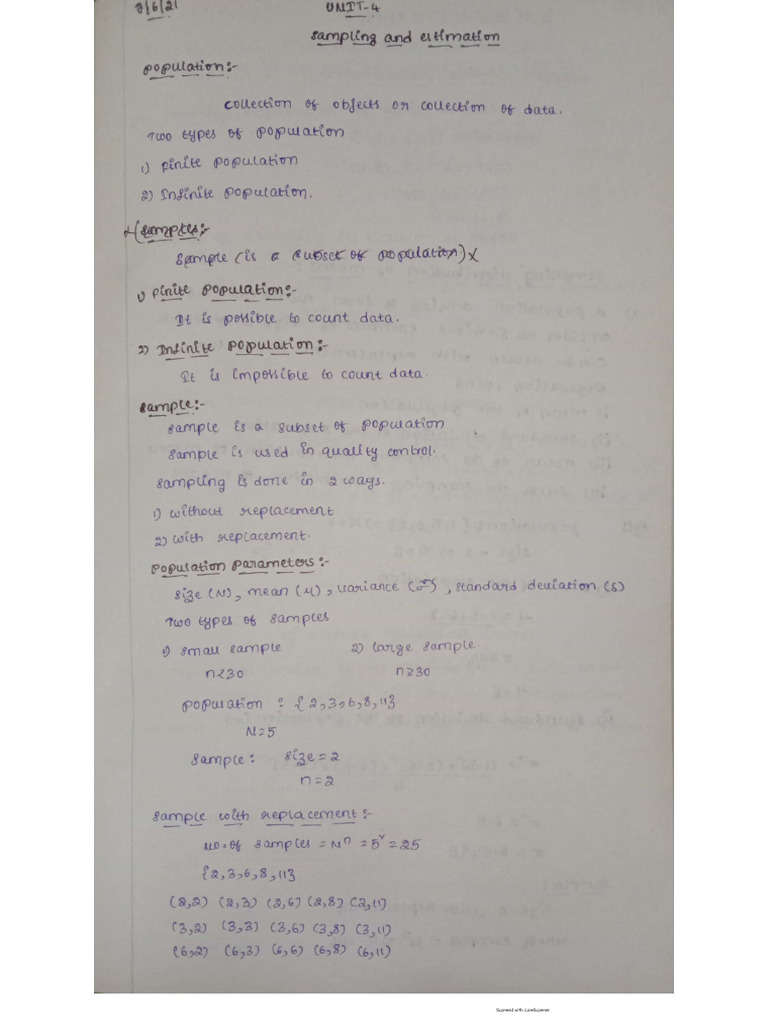 3/6/21 UNIT-4
Sampling and estimation
Population:-
Collection of objects or collection of data.
Two types of population
1) Finite population
2) Infinite population.
x(Samples:-
Sample (is a subset of population)x
1) Finite population:-
It is possible to count data.
2) Infinite population:-
It is impossible to count data.
Sample:-
Sample is a subset of population
Sample is used in quality control.
Sampling is done in 2 ways.
1) without replacement
2) with replacement.
Population Parameters:-
Size (N), mean (μ), variance (σ²), standard deviation (S)
Two types of samples
1) Small sample 2) Large sample
n<30 n≥30
Population : {2,3,6,8,11}
N=5
Sample: Size=2
n=2
Sample with replacement:-
No. of samples = Nⁿ = 5² = 25
{2,3,6,8,11}
(2,2) (2,3) (2,6) (2,8) (2,11)
(3,2) (3,3) (3,6) (3,8) (3,11)
(6,2) (6,3) (6,6) (6,8) (6,11)
Scanned with CamScanner